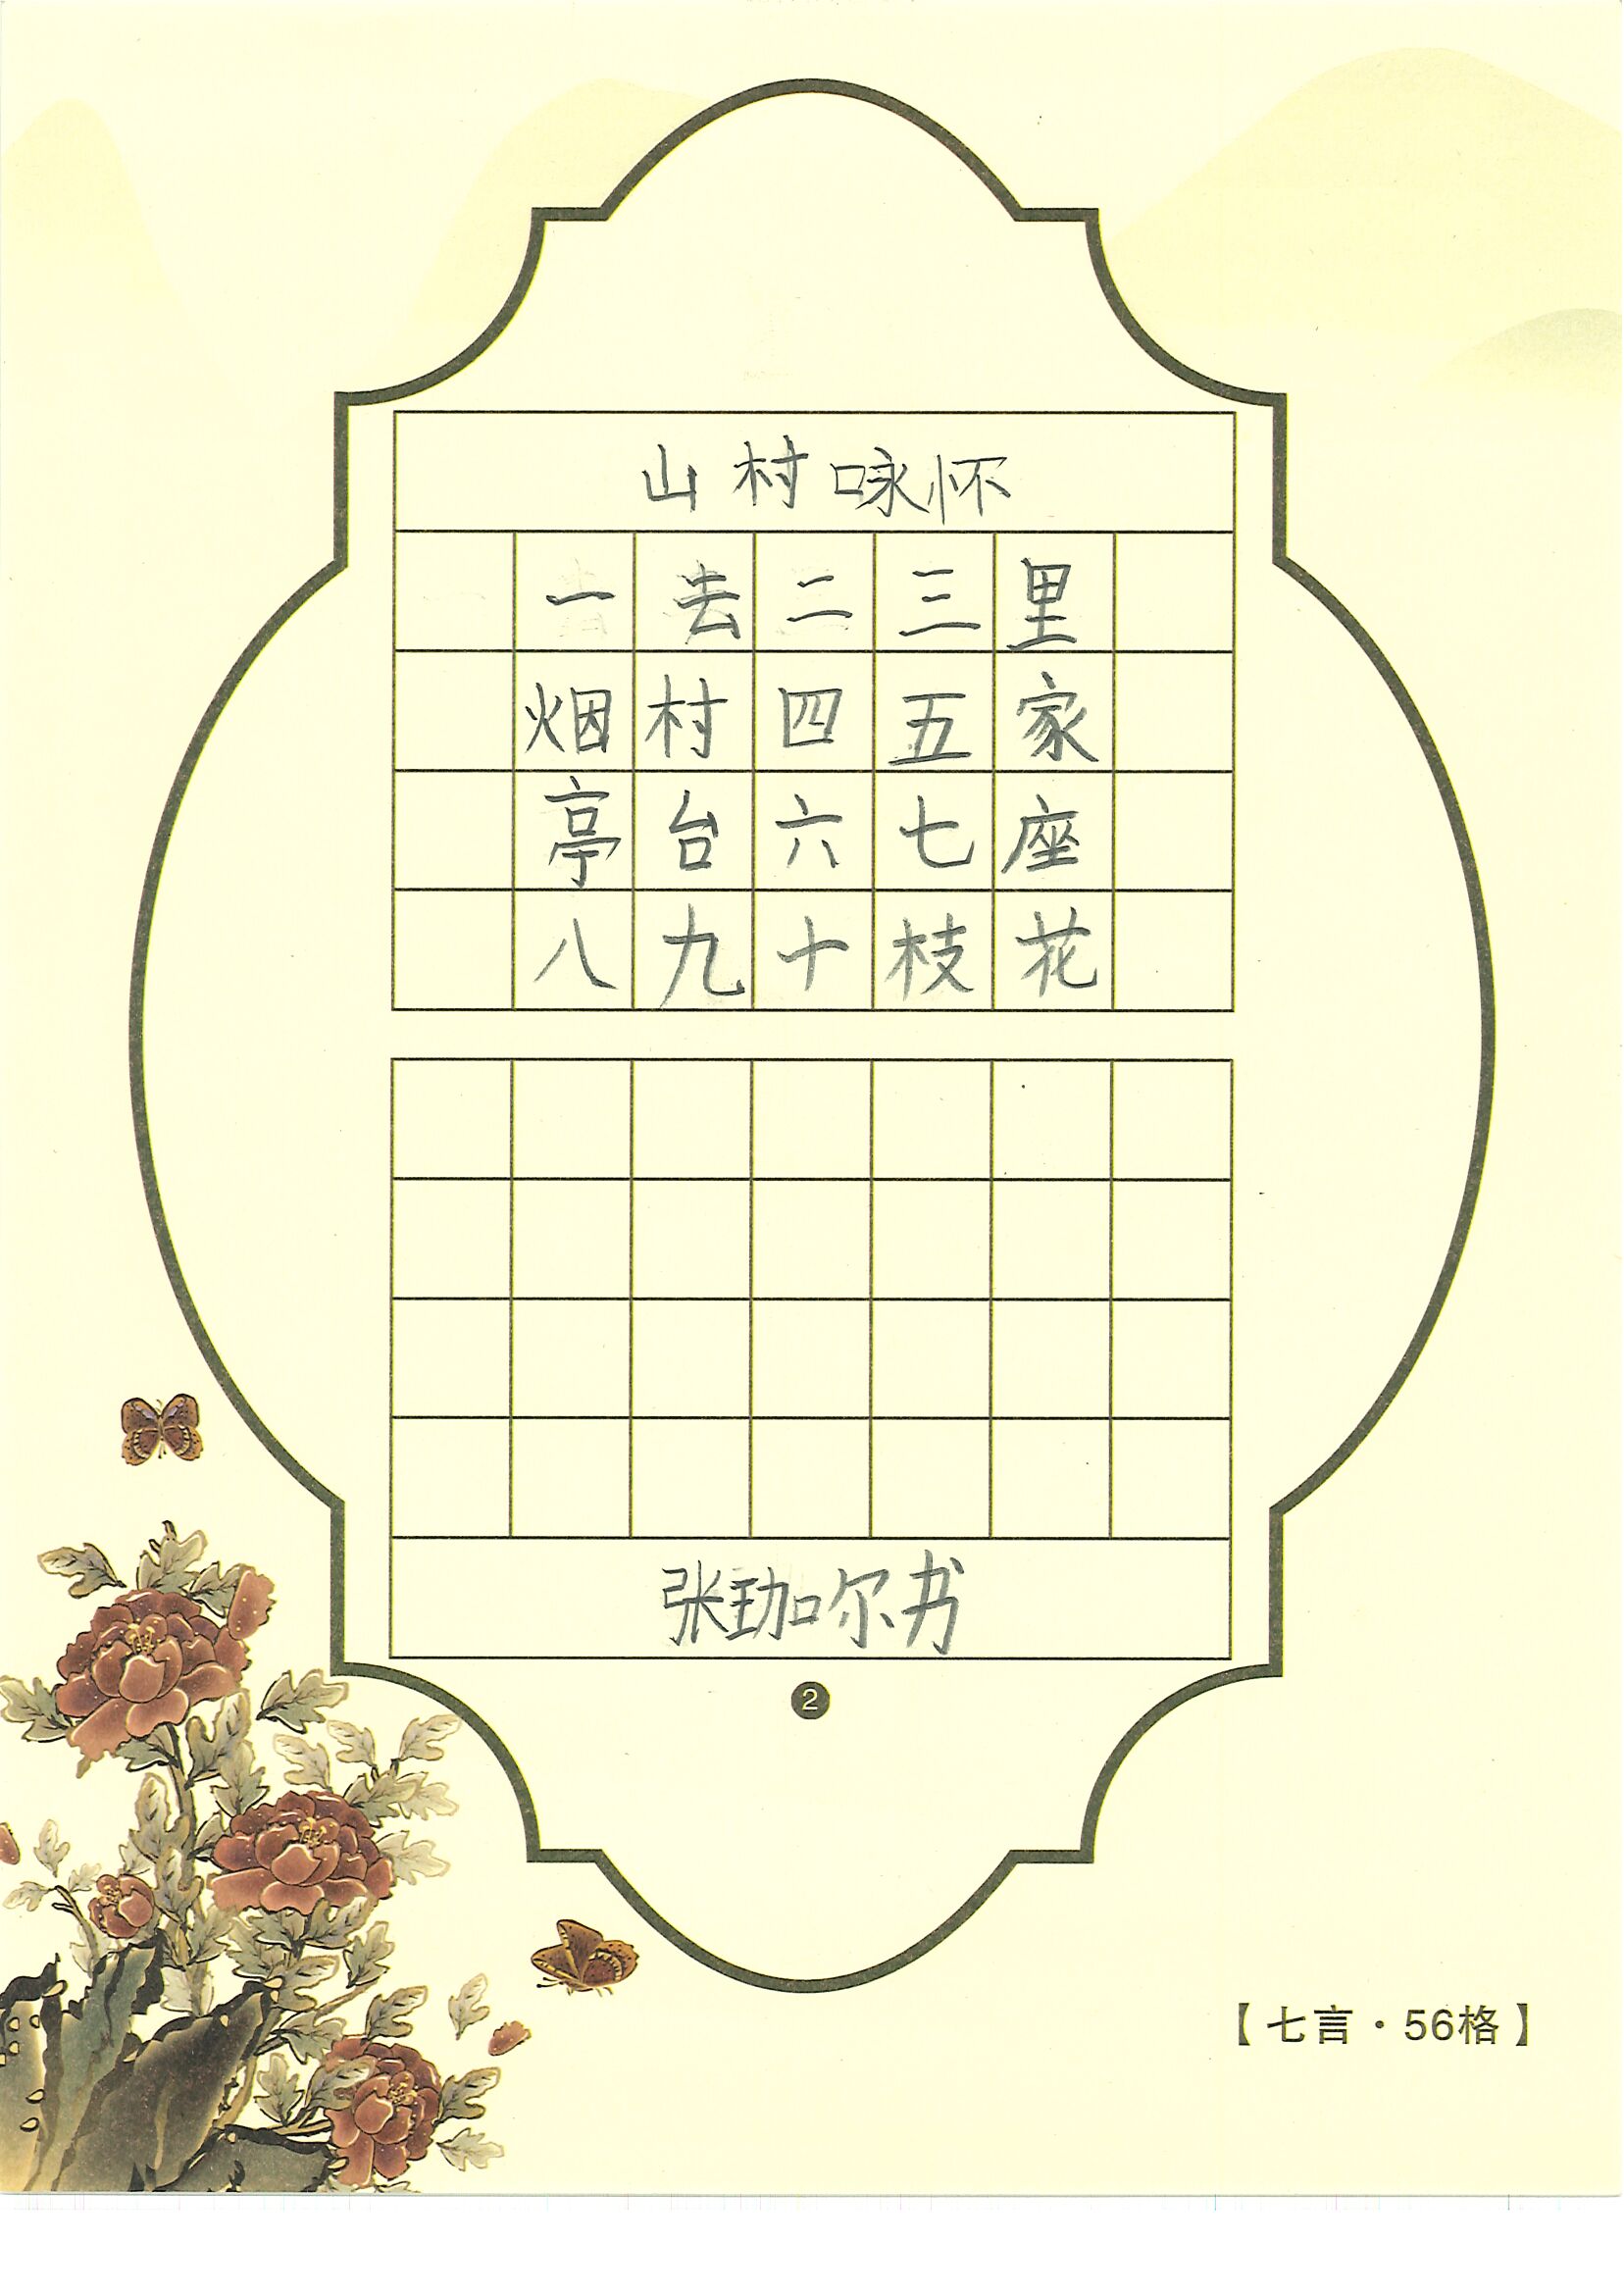 山村咏怀
一去二三里
烟村四五家
亭台六七座
八九十枝花
张珈尔书
2
【七言·56格】